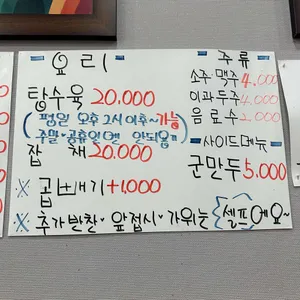 요리
탕수육 20.000
(평일 오후 2시 이후~가능
주말·공휴일엔 안되요)
잡채 20.000
※ 곱빼기 +1.000
※ 추가반찬·앞접시·가위는 셀프예요~
주류
소주·맥주 4.000
이과두주 4.000
음료수 2.000
사이드메뉴
군만두 5.000